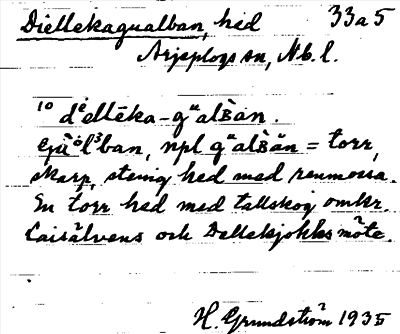 Diellekagualban, hed 33a5
Arjeplogs sn, Nb. l.
1⁰ dėllēka-gᵘ̈alB̀an.
gu̇ȯl³ban, npl gᵘ̈alB̀ăn = torr,
skarp, stenig hed med renmossa.
En torr hed med tallskog omkr.
Laisälvens och Dellekjokks möte.
H. Grundström 1935